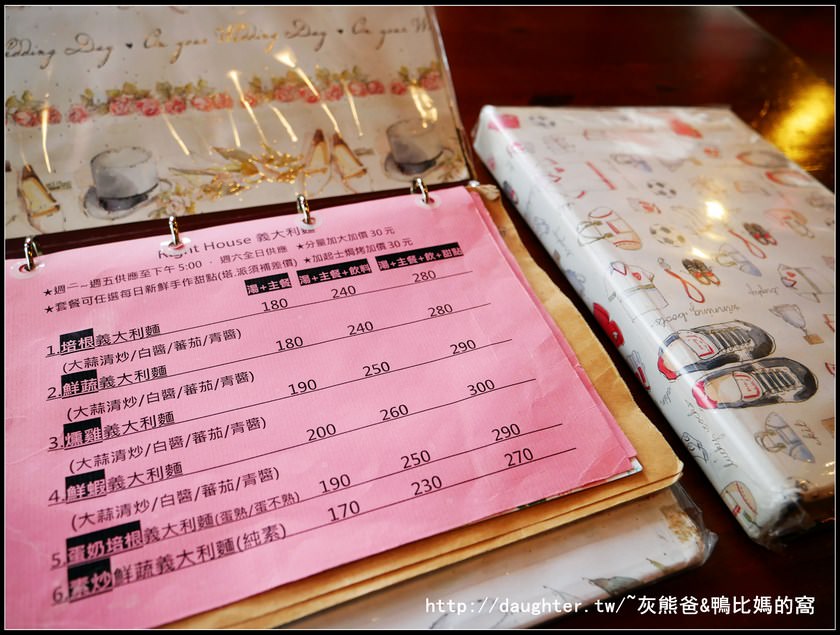 edding Day ♥ On your Wedding Day ♥ On your W
House 義大利麵
★週二~週五供應至下午 5:00 ‧ 週六全日供應 ★分量加大加價 30 元
★套餐可任選每日新鮮手作甜點(塔.派須補差價) ★加起士焗烤加價 30 元
湯+主餐 湯+主餐+飲料 湯+主餐+飲+甜點
1.培根義大利麵 180 240 280
(大蒜清炒/白醬/蕃茄/青醬)
2.鮮蔬義大利麵 180 240 280
(大蒜清炒/白醬/蕃茄/青醬)
3.燻雞義大利麵 190 250 290
(大蒜清炒/白醬/蕃茄/青醬)
4.鮮蝦義大利麵 200 260 300
(大蒜清炒/白醬/蕃茄/青醬)
5.蛋奶培根義大利麵(蛋熟/蛋不熟) 190 250 290
6.素炒鮮蔬義大利麵(純素) 170 230 270
http://daughter.tw/~灰熊爸&鴨比媽的窩